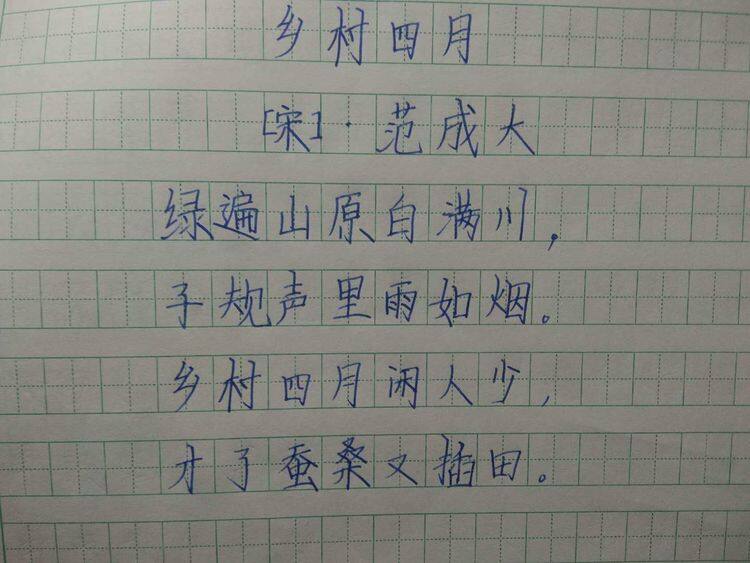 乡村四月
[宋]·范成大
绿遍山原白满川,
子规声里雨如烟。
乡村四月闲人少,
才了蚕桑又插田。